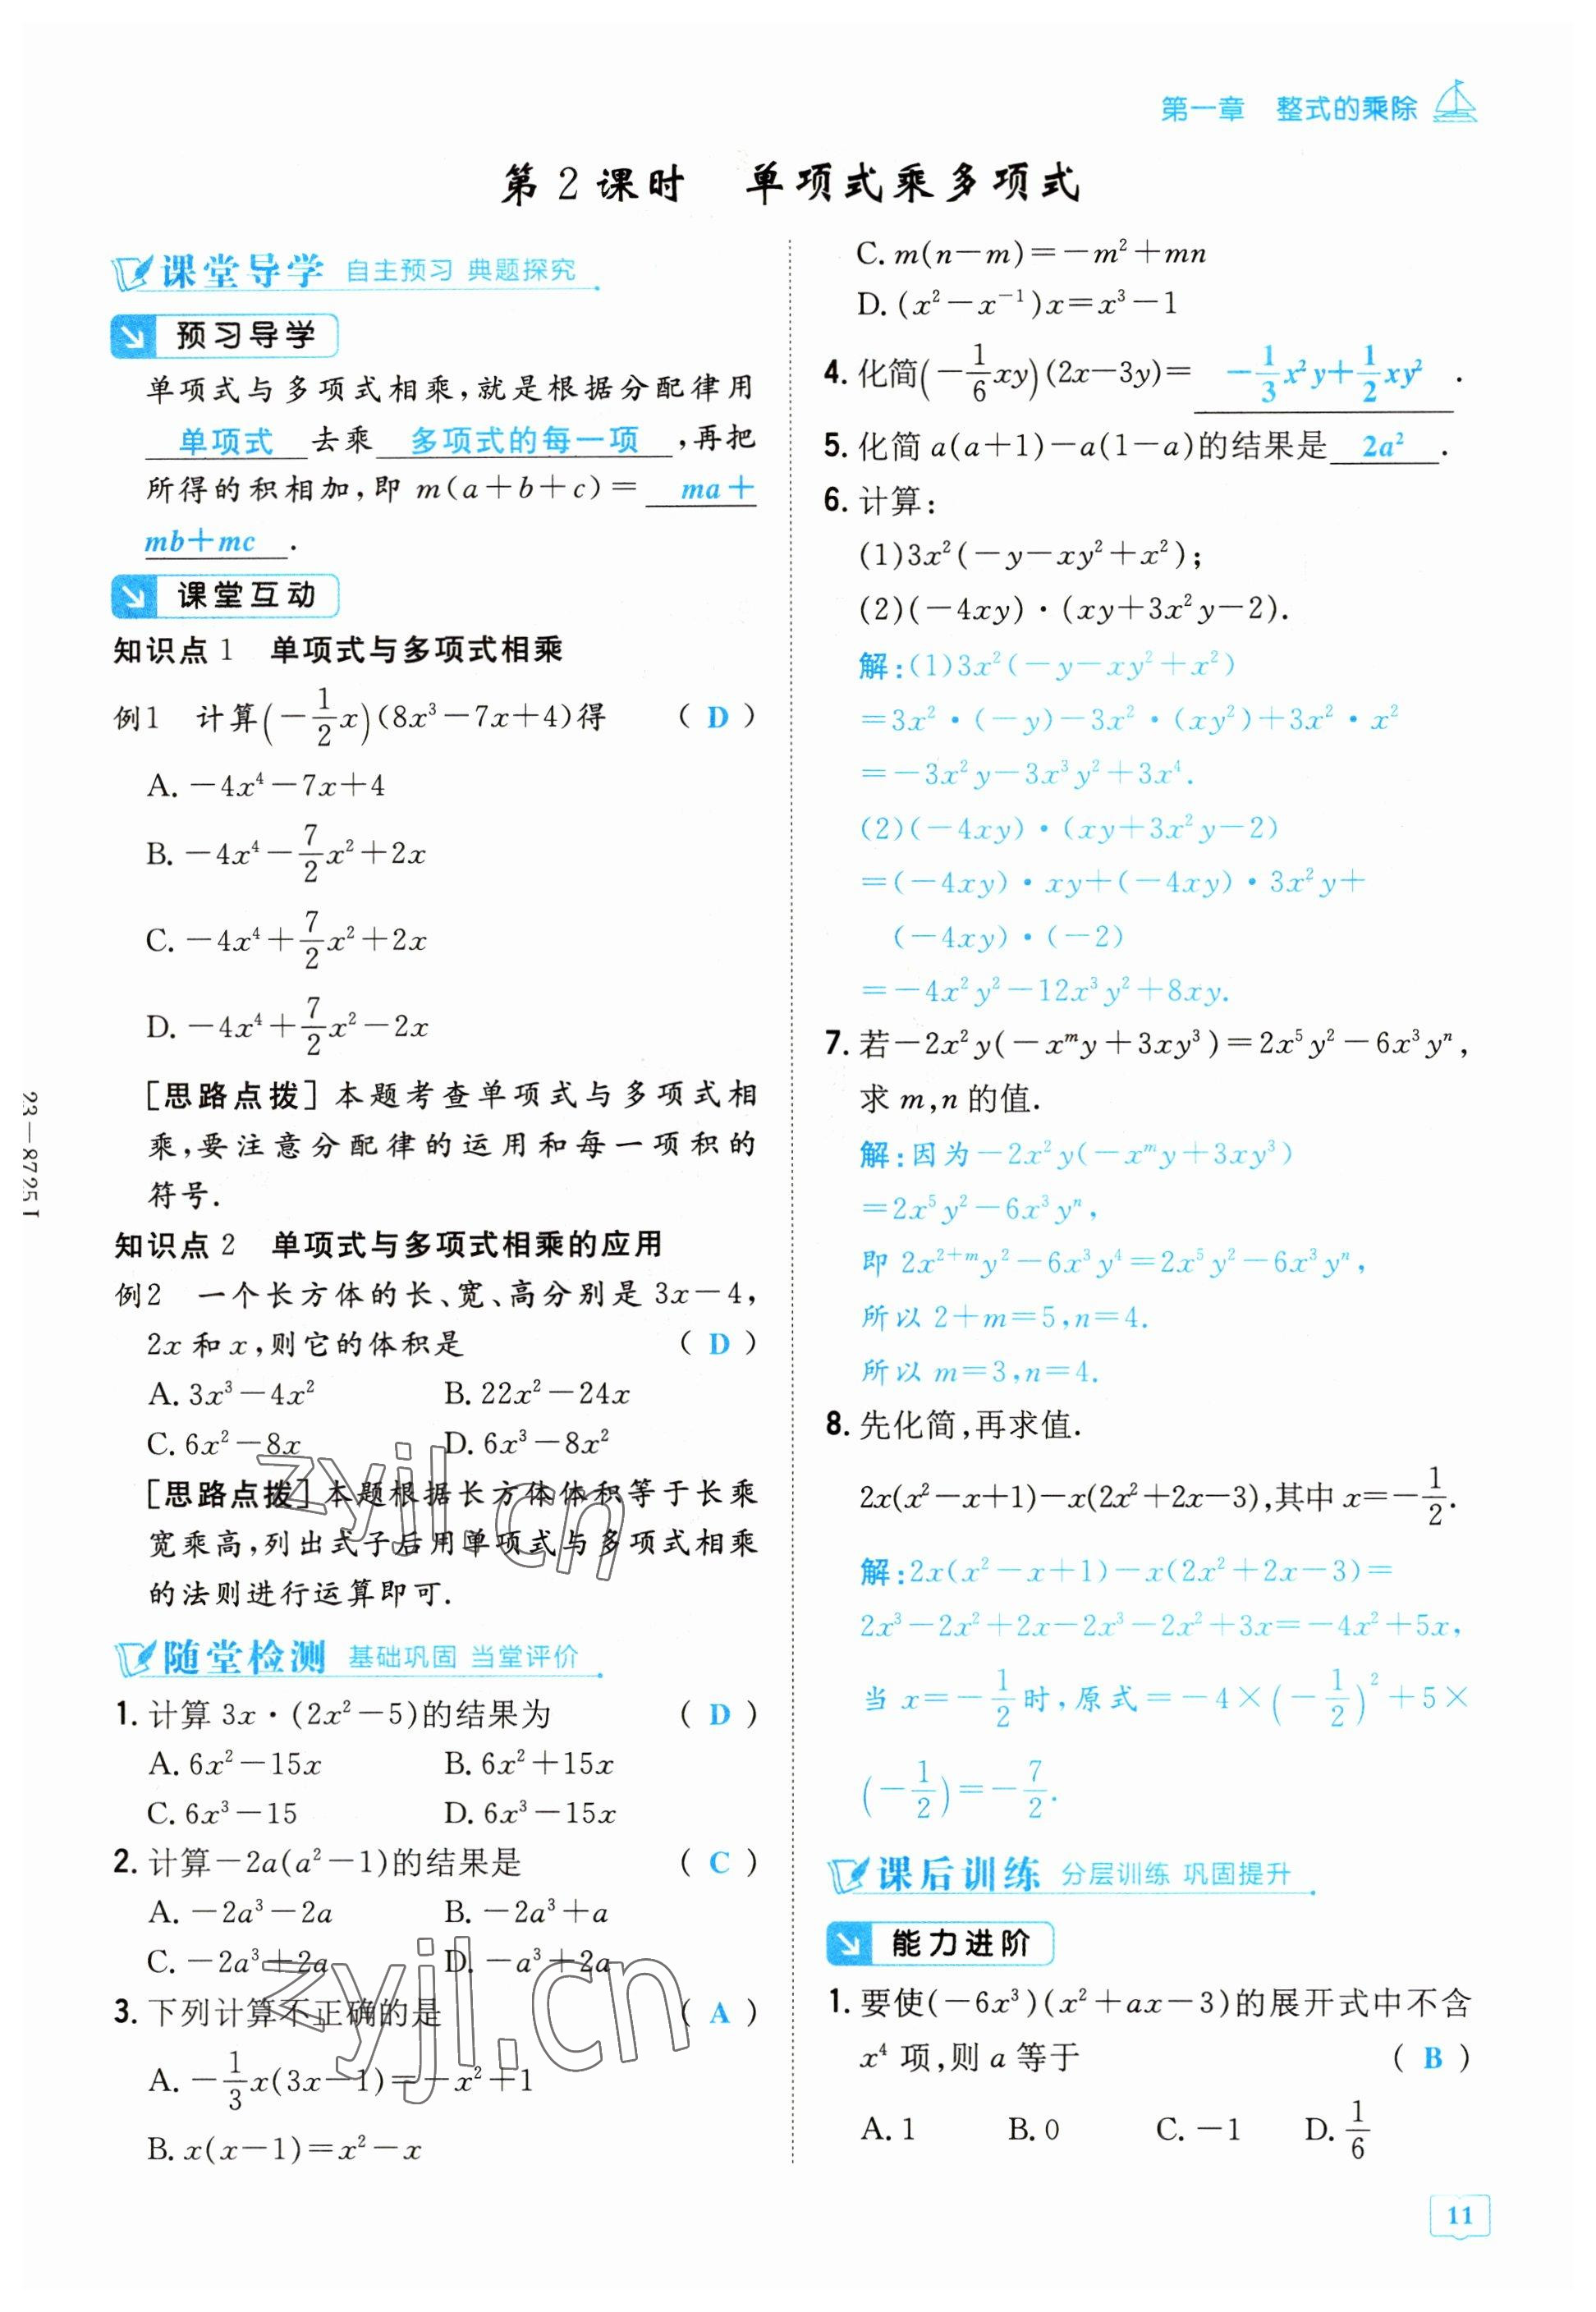 第一章　整式的乘除
第 2 课时　单项式乘多项式
课堂导学 自主预习 典题探究
预习导学
单项式与多项式相乘,就是根据分配律用
单项式 去乘 多项式的每一项 ,再把
所得的积相加,即 m(a+b+c)= ma+
mb+mc .
课堂互动
知识点 1　单项式与多项式相乘
例1　计算(-1/2x)(8x³-7x+4)得　( D )
A. -4x⁴-7x+4
B. -4x⁴-7/2x²+2x
C. -4x⁴+7/2x²+2x
D. -4x⁴+7/2x²-2x
[思路点拨] 本题考查单项式与多项式相
乘,要注意分配律的运用和每一项积的
符号.
知识点 2　单项式与多项式相乘的应用
例2　一个长方体的长、宽、高分别是 3x-4,
2x 和 x,则它的体积是　( D )
A. 3x³-4x²　B. 22x²-24x
C. 6x²-8x　D. 6x³-8x²
[思路点拨] 本题根据长方体体积等于长乘
宽乘高,列出式子后用单项式与多项式相乘
的法则进行运算即可.
随堂检测 基础巩固 当堂评价
1. 计算 3x·(2x²-5)的结果为　( D )
A. 6x²-15x　B. 6x²+15x
C. 6x³-15　D. 6x³-15x
2. 计算-2a(a²-1)的结果是　( C )
A. -2a³-2a　B. -2a³+a
C. -2a³+2a　D. -a³+2a
3. 下列计算不正确的是　( A )
A. -1/3x(3x-1)=-x²+1
B. x(x-1)=x²-x
C. m(n-m)=-m²+mn
D. (x²-x⁻¹)x=x³-1
4. 化简(-1/6xy)(2x-3y)= -1/3x²y+1/2xy² .
5. 化简 a(a+1)-a(1-a)的结果是 2a² .
6. 计算:
(1)3x²(-y-xy²+x²);
(2)(-4xy)·(xy+3x²y-2).
解:(1)3x²(-y-xy²+x²)
=3x²·(-y)-3x²·(xy²)+3x²·x²
=-3x²y-3x³y²+3x⁴.
(2)(-4xy)·(xy+3x²y-2)
=(-4xy)·xy+(-4xy)·3x²y+
(-4xy)·(-2)
=-4x²y²-12x³y²+8xy.
7. 若-2x²y(-xᵐy+3xy³)=2x⁵y²-6x³yⁿ,
求 m,n 的值.
解:因为-2x²y(-xᵐy+3xy³)
=2x⁵y²-6x³yⁿ,
即 2x²⁺ᵐy²-6x³y⁴=2x⁵y²-6x³yⁿ,
所以 2+m=5,n=4.
所以 m=3,n=4.
8. 先化简,再求值.
2x(x²-x+1)-x(2x²+2x-3),其中 x=-1/2.
解:2x(x²-x+1)-x(2x²+2x-3)=
2x³-2x²+2x-2x³-2x²+3x=-4x²+5x,
当 x=-1/2时,原式=-4×(-1/2)²+5×
(-1/2)=-7/2.
课后训练 分层训练 巩固提升
能力进阶
1. 要使(-6x³)(x²+ax-3)的展开式中不含
x⁴ 项,则 a 等于　( B )
A. 1　B. 0　C. -1　D. 1/6
23—8725J
zyjl.cn
zyjl.cn
11